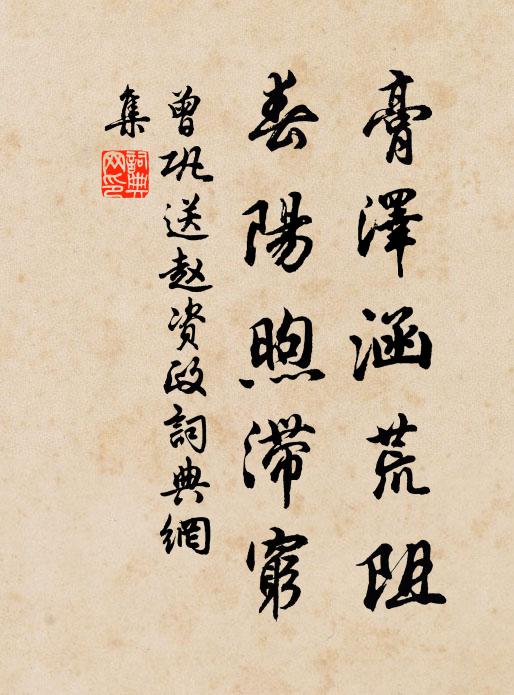 膏澤涵荒阻
春陽煦滯窮
曾巩送赵资政詞典網
集
詞典網印